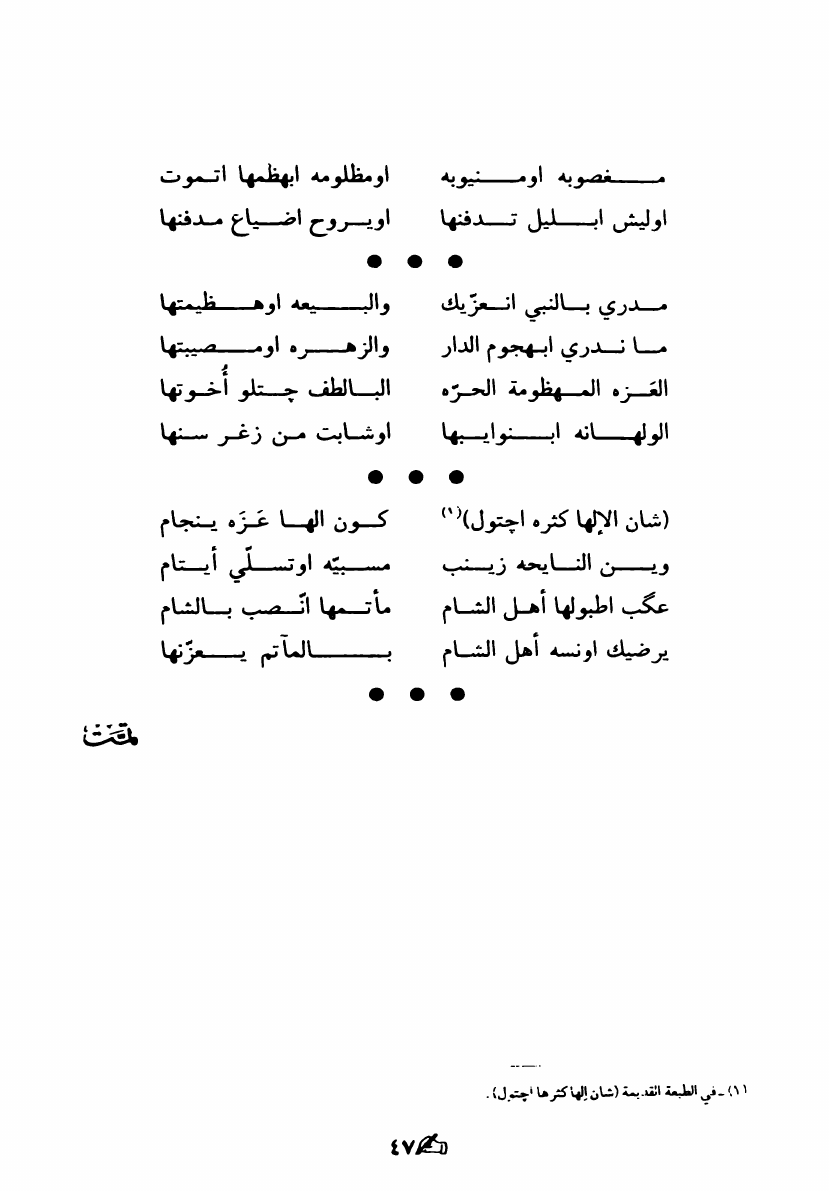 مغصوبه اومنيوبه اومظلومه ابهظمها اتموت
اوليش ابليل تدفنها اويروح اضياع مدفنها
● ● ●
مدري بالنبي انعزّيك والبيعه اوهظيمتها
ما ندري ابهجوم الدار والزهره اومصيبتها
العَزه المهظومة الحرّه البالطف چتلو أُخوتها
الولهانه ابنوايبها اوشابت من زغر سنها
● ● ●
(شان الإلها كثره اچتول)(١) كون الها عَزَه ينجام
وين النايحه زينب مسبيّه اوتسلّي أيتام
عگب اطبولها أهل الشام مأتمها انّصب بالشام
يرضيك اونسه أهل الشام بالمآتم يعزّنها
● ● ●
تمّت
(١) ـ في الطبعة القديمة (شان إلها كثرها اچتول).
٤٧